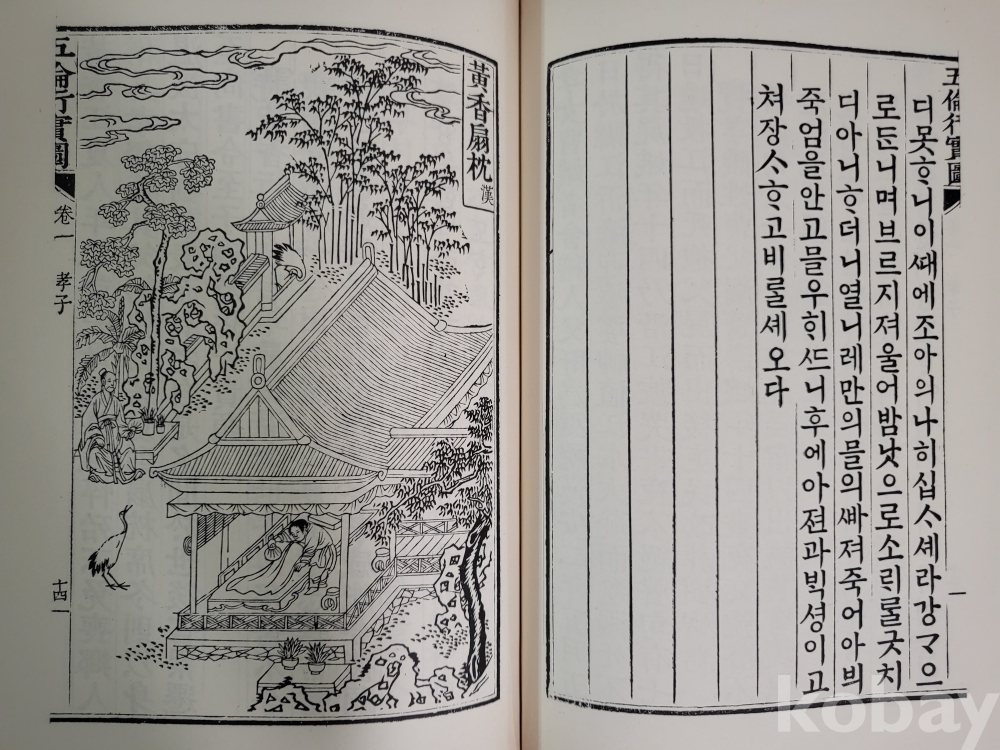 五倫行實圖
디못ᄒᆞ니이ᄯᅢ에조아의나히십ᄉᆞ셰라강ᄀᆞ으
로ᄃᆞᆫ니며브르지져울어밤낫으로소ᄅᆡᄅᆞᆯ긋치
디아니ᄒᆞ더니열니레만의믈의ᄲᅡ져죽어아븨
죽엄을안고믈우ᄒᆡᄯᅳ니후에아젼과ᄇᆡᆨ셩이고
쳐장ᄉᆞᄒᆞ고비ᄅᆞᆯ셰오다
黃香扇枕 漢
五倫行實圖
卷一 孝子
十四
kobay